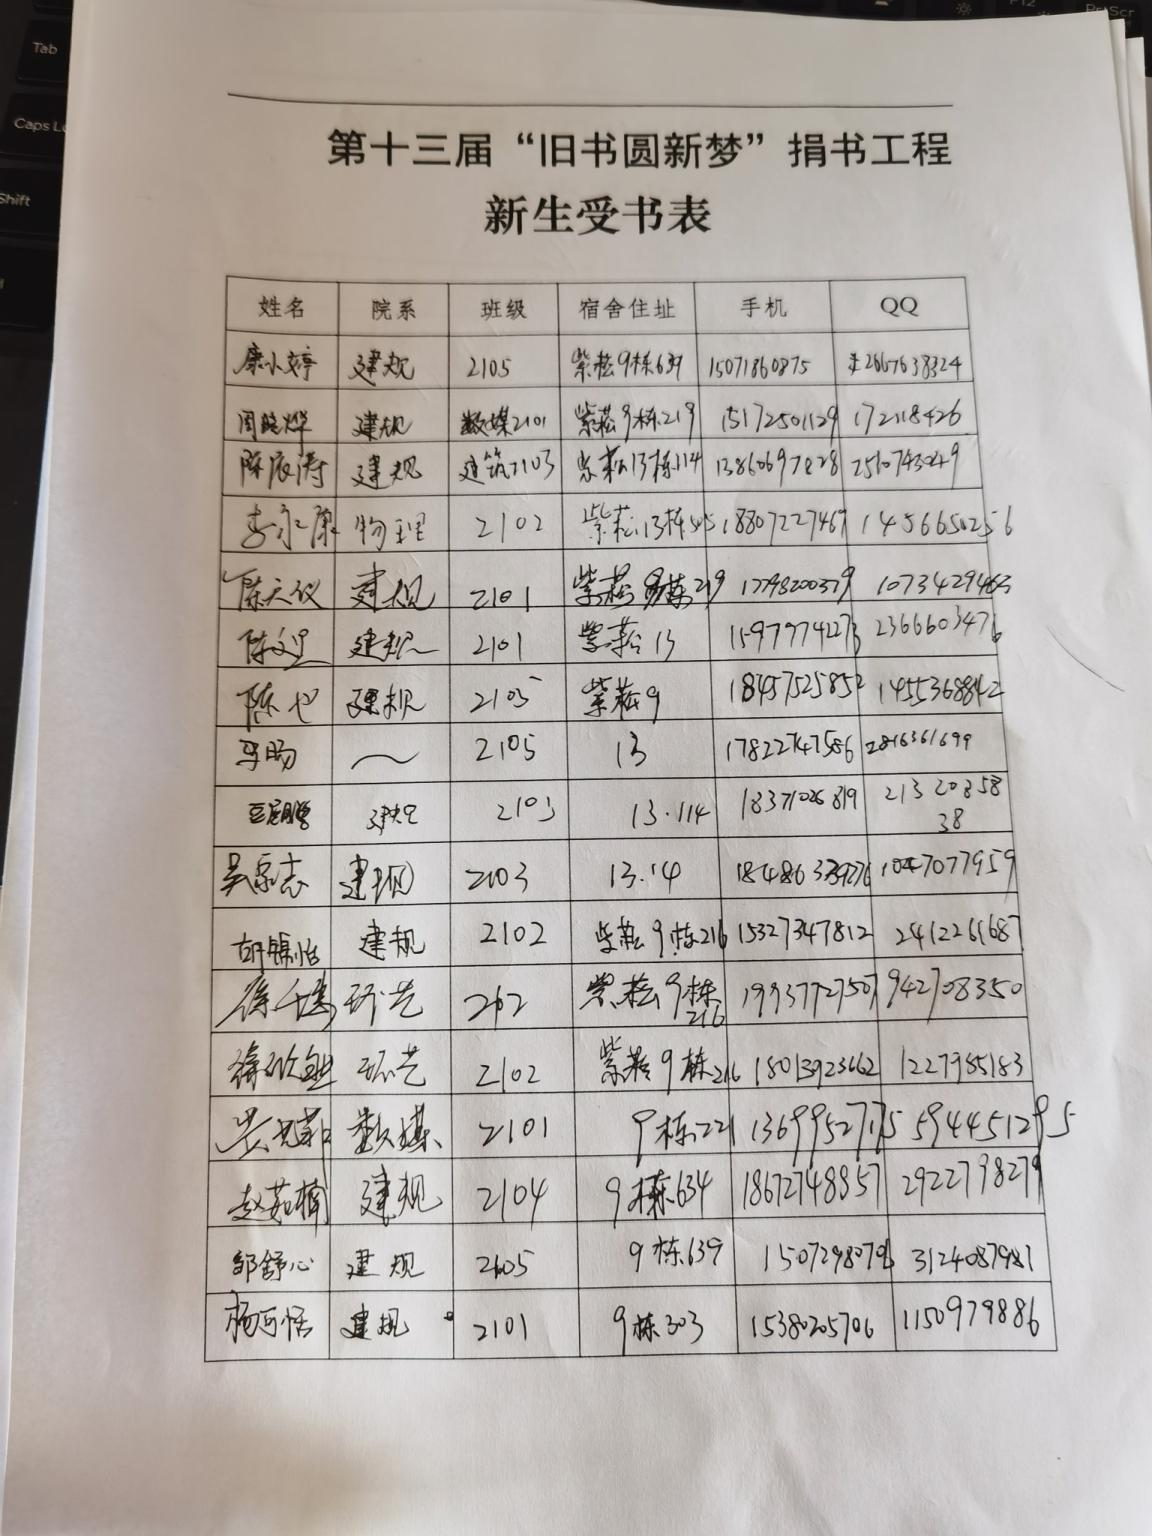 Tab
Caps Lo
Shift
PrtScr
第十三届“旧书圆新梦”捐书工程
新生受书表
姓名 院系 班级 宿舍住址 手机 QQ
康小婷 建规 2105 紫菘9栋639 15071860875 2667638324
周晓烨 建规 数媒2101 紫菘9栋219 15172501129 172118426
陈辰涛 建规 建筑2103 紫菘13栋114 2510743049
李永康 物理 2102 紫菘13栋 18807227467 1456650256
陈天仪 建规 2101 紫菘9栋219 1073429463
建规 2101 紫菘13 15977774273 2366603476
陈也 建规 2105 紫菘9 18457525852 1455368842
2105 13 17822747586 2816361699
建规 2103 13.114 18371026819 21320358
38
吴 志 建规 2103 13.14 1047077959
胡锦怡 建规 2102 紫菘9栋216 15327347812 2412261687
徐 环艺 紫菘9栋 19937727507 942708350
216
徐 环艺 2102 紫菘9栋216 18013923662 1227985183
数媒 2101 9栋221 13699527175 5944451295
赵茹楠 建规 2104 9栋634 18672748857 2922798279
邹舒心 建规 2105 9栋639 15072980706 3124087981
杨可恬 建规 2101 9栋303 15380205706 1150979886